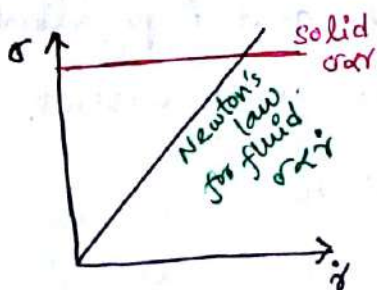 σ
solid
σαγ
Newton's
law
for fluid
σαγ̇
γ̇